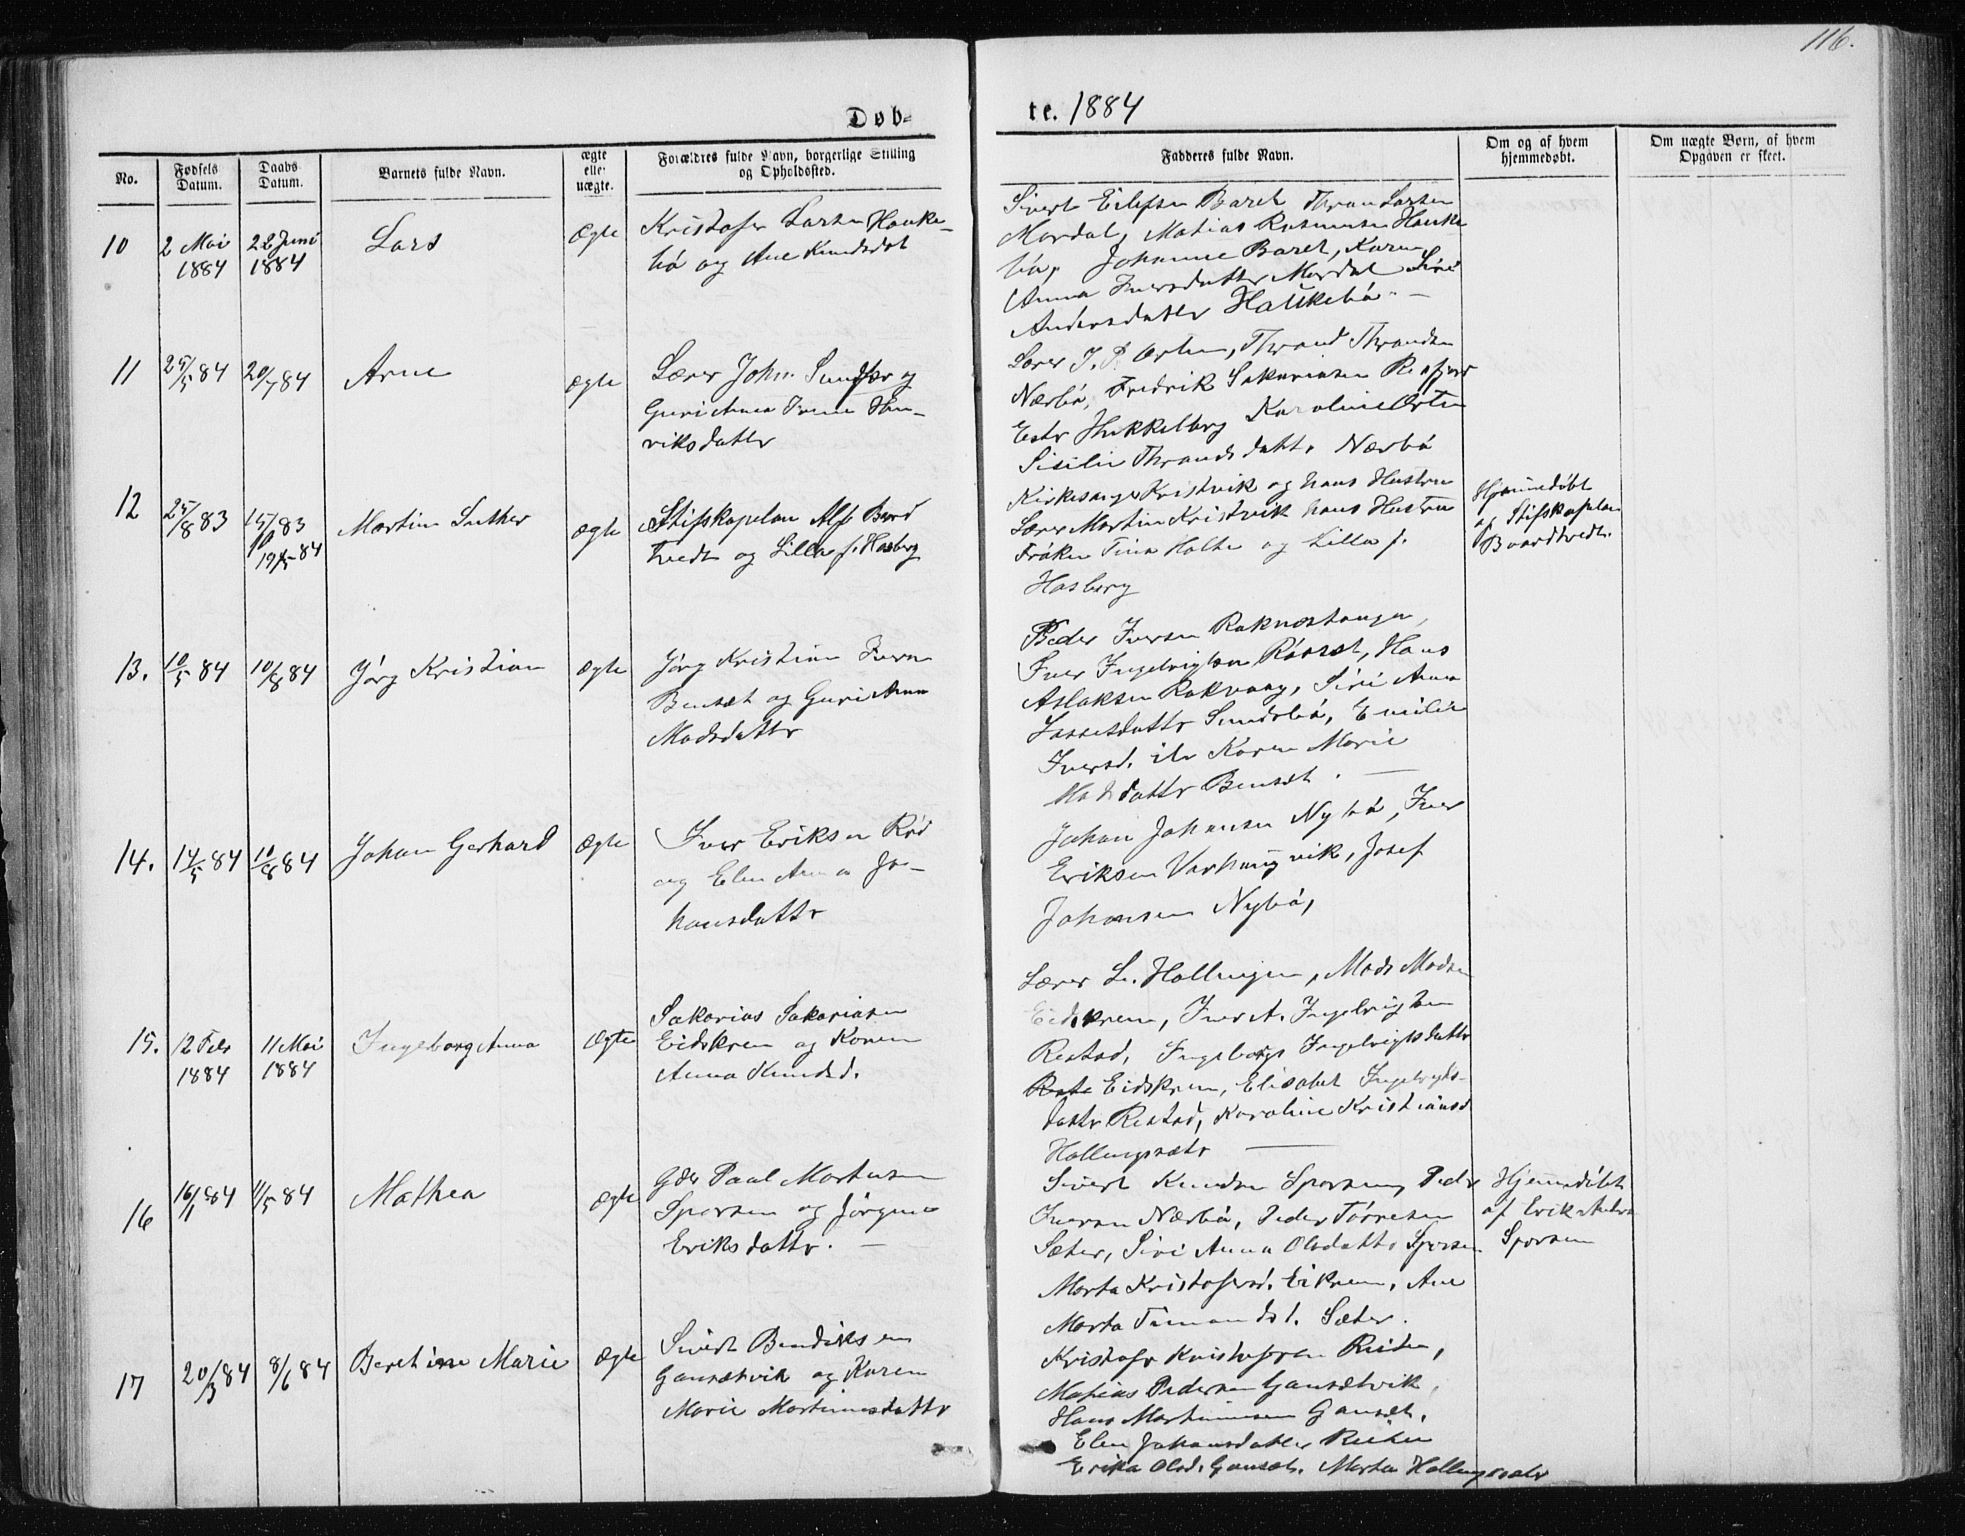 116.
Døb-
te. 1884
No.
Fødsels Datum.
Daabs Datum.
Barnets fulde Navn.
ægte eller uægte.
Forældres fulde Navn, borgerlige Stilling og Opholdssted.
Fadderes fulde Navn.
Om og af hvem hjemmedøbt.
Om uægte Børn, af hvem Opgaven er skeet.
10
2 Mai
1884
22 Juni
1884
Lars
Ægte
Kristofer Larsen Hauke-
bø og Ane Knudsdat
Sivert Eilefsen Baret Thron Larsen
Mordal, Matias Rasmusen Hauke
bø, Johanne Baret, Karen
Anna Iversdatter Mordal Siri
Andersdatter Haukebø. —
11
25/5 84
20/7 84
Arne
ægte
Lærer John Sundfær og
Guri Anna Irene Hen-
riksdattr
Lærer J. P. Orten, Thrond Throndsen
Nærbø, Fredrik Sakariasen
Estr Hukkelberg Karoline Orten
Sisilie Thronds datt. Nærbø
12
25/8 83
15/10 83
19/5-84
Martin Luther
ægte
Stifskapelan Alf Bard
tvedt og Lilla f. Hasberg
Kirkesanger Kristvik og hans Hustru
Lærer Martin Kristvik hans Hustru
Frøken Tina Holte og Lilla f.
Hasberg
Hjemmedøbt
af Stifskapelan
Baardtvedt.
13.
10/5 84
10/8 84
Jørg Kristian
ægte
Jørg Kristian Ivern
Bensæt og Guri Anna
Madsdattr
Peder Iversen Raknestangen,
Iver Ingebrigtsen Rørset, Hans
Aslaksen Rakvaag, Siri Anna
Lassesdattr Sundsbø, Emilie
Iversd. Karen Marie
Madsdattr Bensæt. —
14.
14/5 84
10/8 84
Johan Gerhard
Ægte
Iver Eriksen Rød
og Elen Anna Jo-
hansdattr
Johan Johansen Nybø, Iver
Eriksen Varhaugvik, Josef
Johansen Nybø,
15.
12 Feb
1884
11 Mai
1884
Ingeborg Anna
Ægte
Sakarias Sakariasen
Eidskrem og Karen
Anna Knudsd.
Lærer L. Hollingen, Mads Madsen
Eidskrem, Iver A. Ingebrigtsen
Reistad, Ingeborg Ingebrigtsdattr
Eidskrem, Elisabet Ingebrigts-
dattr Reistad, Karoline Kristiansd
Hollingsætr —
16
16/1 84
11/5 84
Mathea
Ægte
Gdr Paul Martinsen
Sporsem og Jørgine
Eriksdattr. —
Sivert Knudsen Sporsem, Peder
Iversen Nærbø, Peder Tørresen
Sæter, Siri Anna Olsdattr Sporsem
Marta Kristofersd. Eikrem, Ane
Marta Timands d. Sæter.
Hjemmedøbt
af Erik
Sporsem
17
20/3 84
8/6 84
Beretine Marie
Ægte
Sivert Bendiksen
Gansætvik og Karen
Marie Martinusdattr
Kristofr Kristofersen Reiten,
Matias Pedersen Gansætvik,
Hans Martinusen Gansæt,
Elen Johansdatter Reiten
Erika Olsd. Gansæt. Marta Hollingsætr